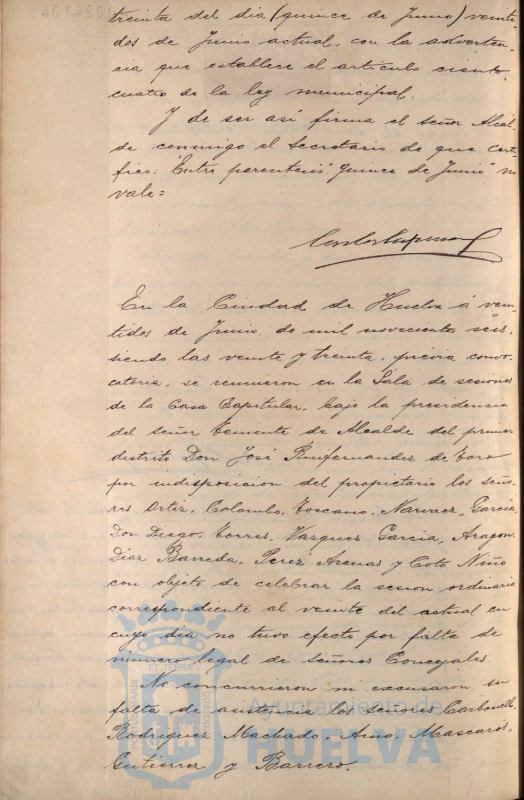 treinta del dia (quince de Junio) veinti-
dos de Junio actual, con la adverten-
cia que establece el articulo ciento
cuatro de la ley municipal.
Y de ser asi firma el señor Alcal-
de conmigo el Secretario de que certi-
fico: "Entre parentesis" quince de Junio" no
vale=
En la Ciudad de Huelva á vein-
tidos de Junio de mil novecientos seis,
siendo las veinte y treinta, previa convo-
catoria, se reunieron en la Sala de sesiones
de la Casa Capitular, bajo la presidencia
del señor Teniente de Alcalde del primer
distrito Don José Ruifernandez de Toro
por indisposicion del propietario los seño-
res Ortiz, Colombo, Toscano, Narvaez, Garcia,
Don Diego, Torres, Vazquez Garcia, Aragon,
Diaz Barreda, Perez Arenas y Coto Niño
con objeto de celebrar la sesion ordinaria
correspondiente al veinte del actual en
cuyo dia no tuvo efecto por falta de
número legal de señores Concejales.
No concurrieron ni excusaron su
falta de asistencia los señores Carbonell,
Rodriguez Machado, Amo, Mascarós,
Gutierrez y Barrero.
Ayuntamiento de
HUELVA